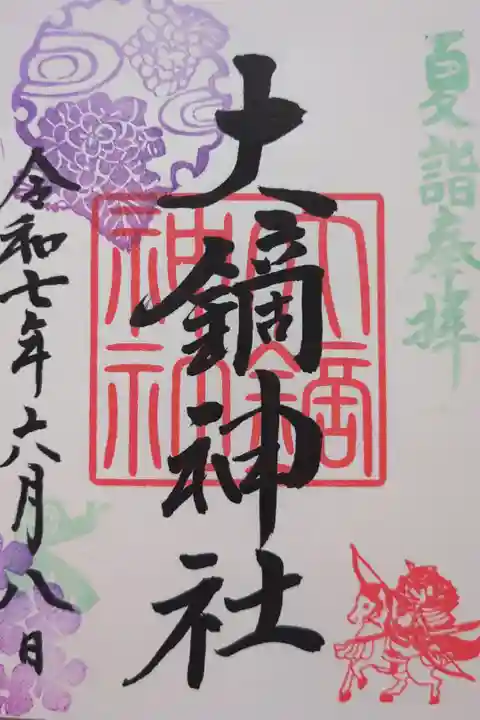 夏詣奉拝
大鏑神社
大鏑
神社
令和七年六月八日